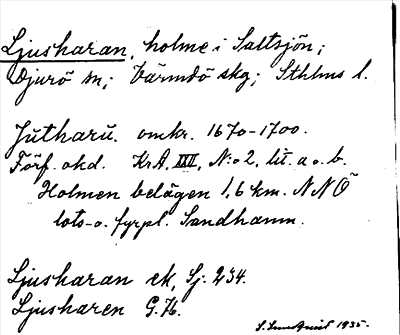 Ljusharan, holme i Saltsjön;
Djurö sn; Värmdö skg; Sthlms l.
Jutharu. omkr. 1670-1700.
Förf. okd. KrA, XXI, N:o 2, lit. a o. b.
Holmen belägen 1,6 km. NNÖ
lots- o. fyrpl. Sandhamn.
Ljusharan ek, Sj. 234.
Ljusharen G.76.
1935.